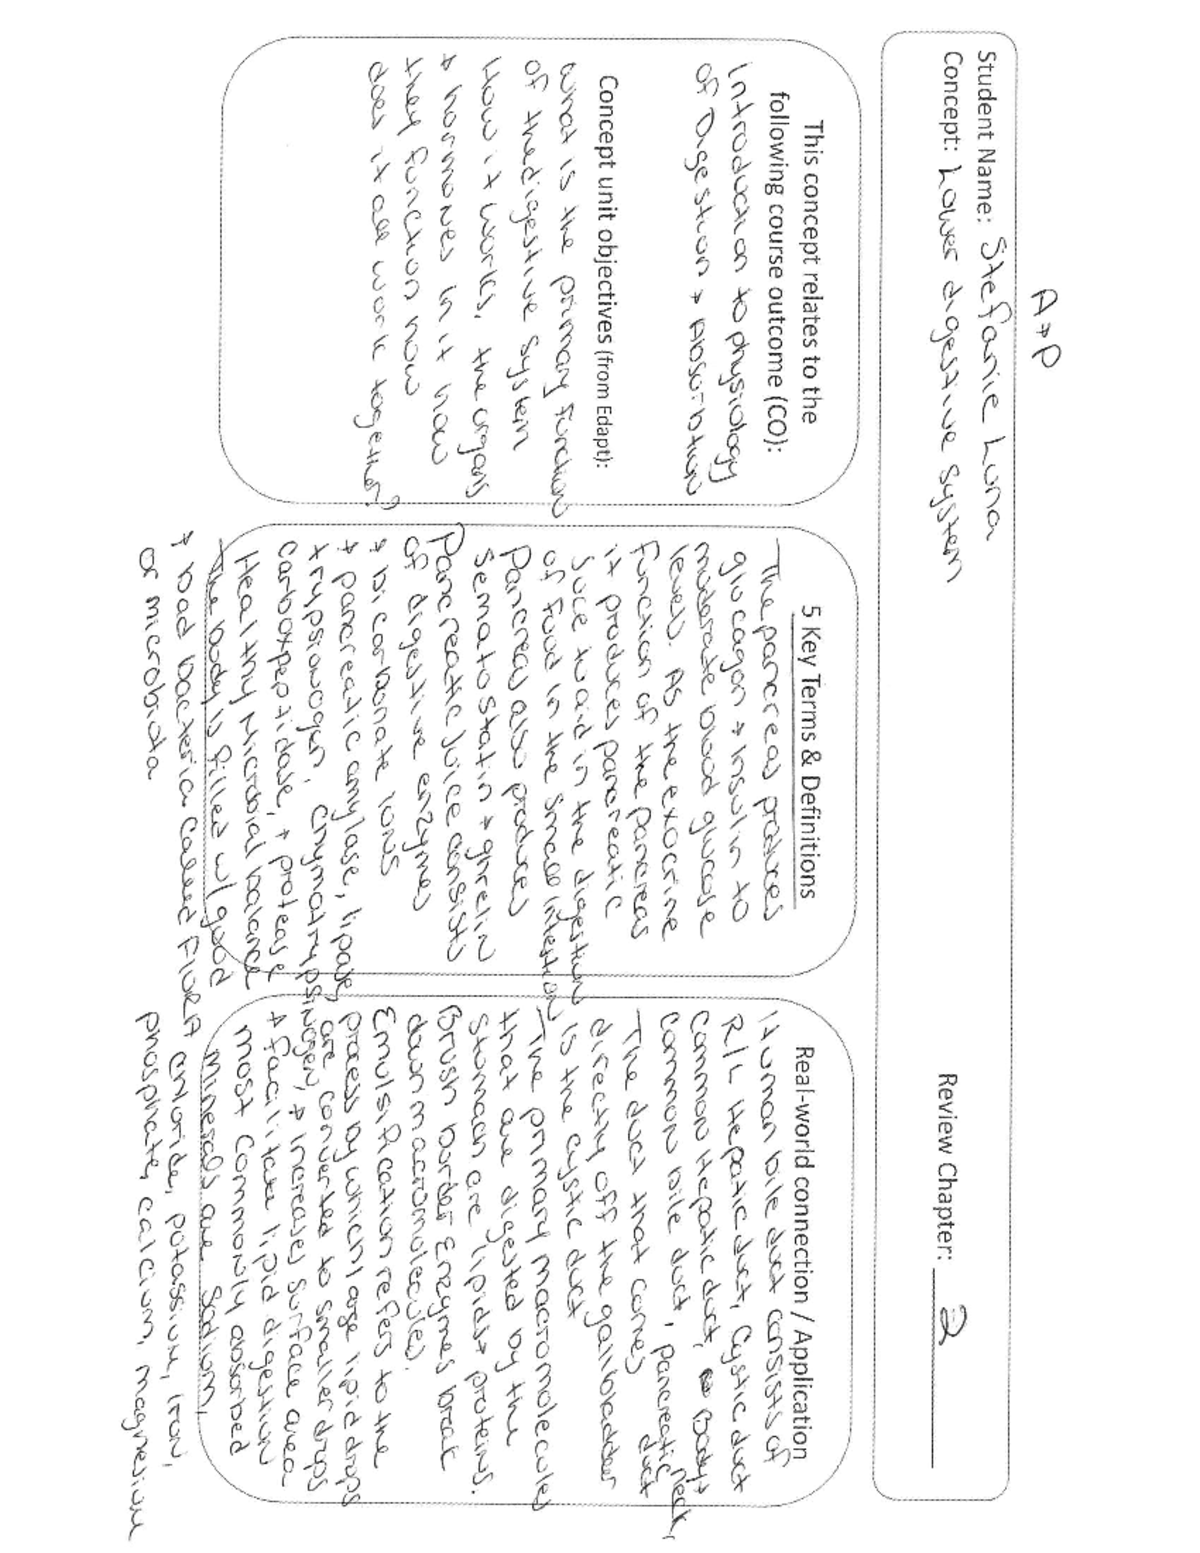 A+P
Student Name: Stefanie Luna
Concept: Lower digestive system
Review Chapter: 2
This concept relates to the
following course outcome (CO):
Introduction to physiology
of Digestion + Absorbtion
Concept unit objectives (from Edapt):
What is the primary function
of the digestive system
How it works, the organs
+ hormones in it how
they function how
does it all work together?
5 Key Terms & Definitions
The pancreas produces
glucagon + Insulin to
moderate blood glucose
levels. As the exocrine
function of the pancreas
it produces pancreatic
juice to aid in the digestion
of food in the small intestion
Pancreas also produces
Sematostatin + ghrelin
Pancreatic juice consists
of digestive enzymes
+ bicarbonate ions
+ pancreatic amylase, lipase,
trypsinogen, chymotrypsinogen, +
carboxpeptidase, + protease
Healthy Microbial balance
The body is filled w/ good
+ bad bacteria called FLORA
or microbiota
Real-world connection / Application
Human bile duct consists of
R/L Hepatic duct, Cystic duct
Common Hepatic duct, Body +
neck,
common bile duct, pancreatic
duct
The duct that comes
directly off the gallbladder
is the cystic duct
The primary macromolecules
that are digested by the
Stomach are lipids + proteins.
Brush border Enzymes break
down macromolecules.
Emulsification refers to the
process by which large lipid drops
are converted to smaller drops
+ increases surface area
+ facilitate lipid digestion
most commonly absorbed
Minerals are Sodium,
chloride, potassium, Iron,
phosphate, calcium, magnesium